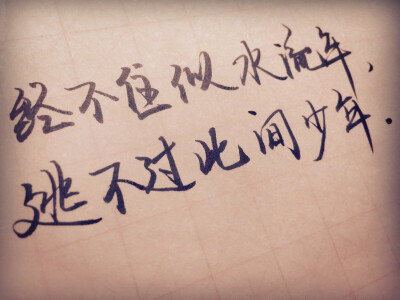 经不住似水流年、
逃不过此间少年.